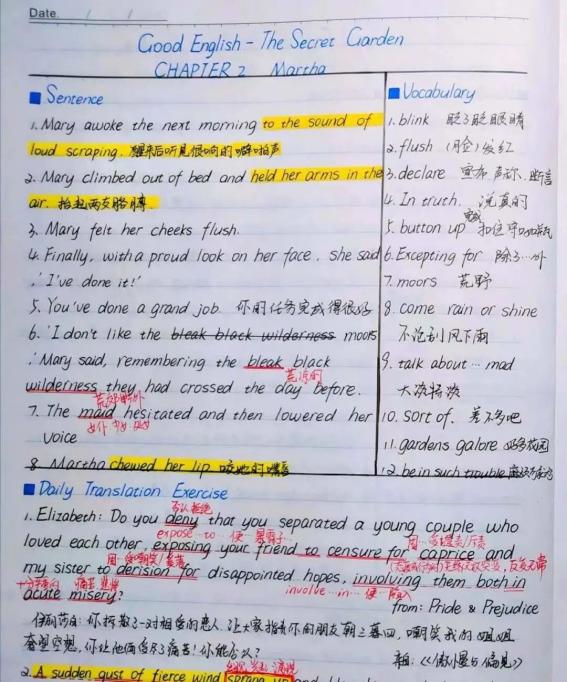 Date / /
Good English - The Secret Garden
CHAPTER 2 Martha
Sentence
1. Mary awoke the next morning to the sound of
loud scraping. 醒来后听见很响的噼啪声
2. Mary climbed out of bed and held her arms in the
air. 抬起两支胳膊
3. Mary felt her cheeks flush.
4. Finally, with a proud look on her face, she said
, 'I've done it!'
5. You've done a grand job. 你的任务完成得很好
6. 'I don't like the bleak black wilderness moors
,' Mary said, remembering the bleak black
荒凉的
wilderness they had crossed the day before.
荒郊野外
7. The maid hesitated and then lowered her
voice
8. Martha chewed her lip 咬她的嘴唇
Vocabulary
1. blink 眨了眨眼睛
2. flush (脸)发红
3. declare 宣布 声称、断言
4. In truth. 说真的
5. button up
6. Excepting for 除了…外
7. moors 荒野
8. come rain or shine
不论刮风下雨
9. talk about … mad
10. sort of. 差不多吧
11. gardens galore
12. be in such trouble
Daily Translation Exercise
否认 拒绝
1. Elizabeth: Do you deny that you separated a young couple who
expose … to … 使…暴露于
loved each other, exposing your friend to censure for caprice and
my sister to derision for disappointed hopes, involving them both in
involve … in … 使…陷入
acute misery?
from: Pride & Prejudice
伊丽莎白: 你拆散了一对相爱的恋人, 让大家指责你的朋友朝三暮四, 嘲笑我的姐姐
奢望空想, 你让他俩
《傲慢与偏见》
2. A sudden gust of fierce wind sprang up and